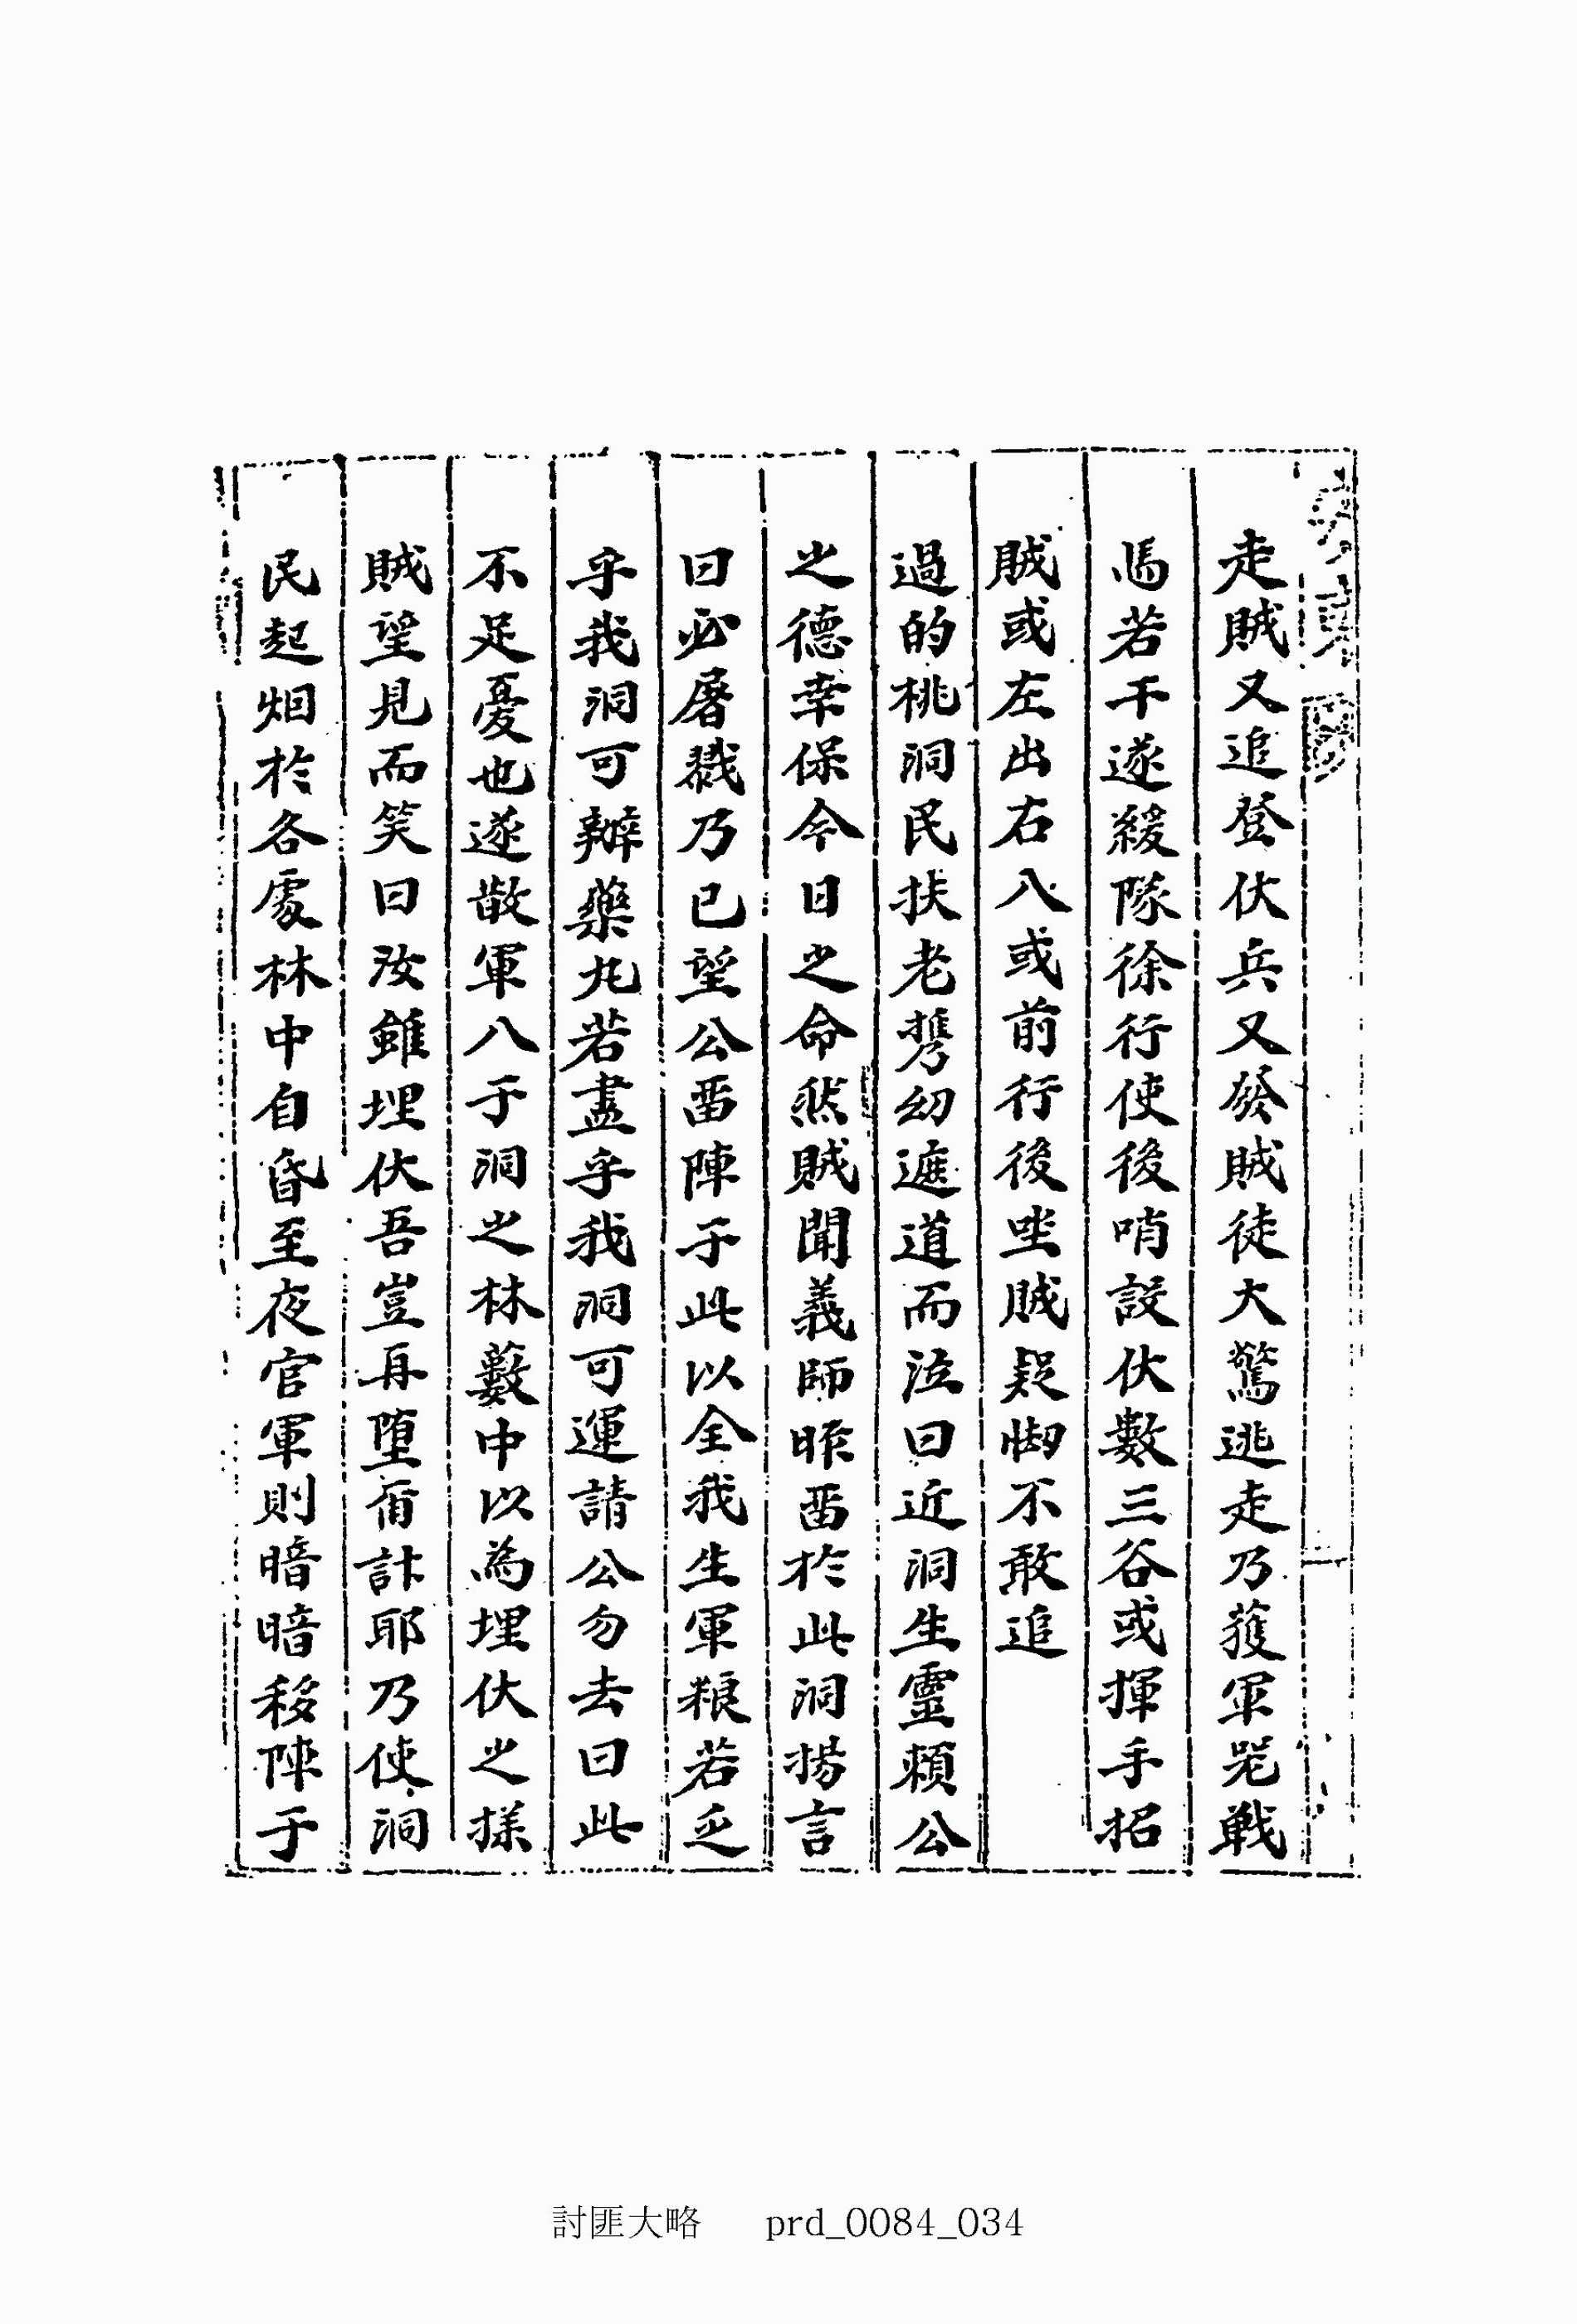 走賊又追登伏兵又發賊徒大驚逃走乃獲軍咒戰
馬若干遂緩隊徐行使後哨設伏數三谷或揮手招
賊或左出右入或前行後坐賊疑㥘不敢追
過的桃洞民扶老携幼遮道而泣曰近洞生靈賴公
之德幸保今日之命然賊聞義師昨畱於此洞揚言
曰必屠戮乃已望公畱陣于此以全我生軍粮若乏
乎我洞可辦藥丸若盡乎我洞可運請公勿去曰此
不足憂也遂散軍入于洞之林藪中以為埋伏之㨾
賊望見而笑曰汝雖埋伏吾豈再墮甭計耶乃使洞
民起烟於各處林中自昏至夜官軍則暗暗移陣于
討匪大略 prd_0084_034